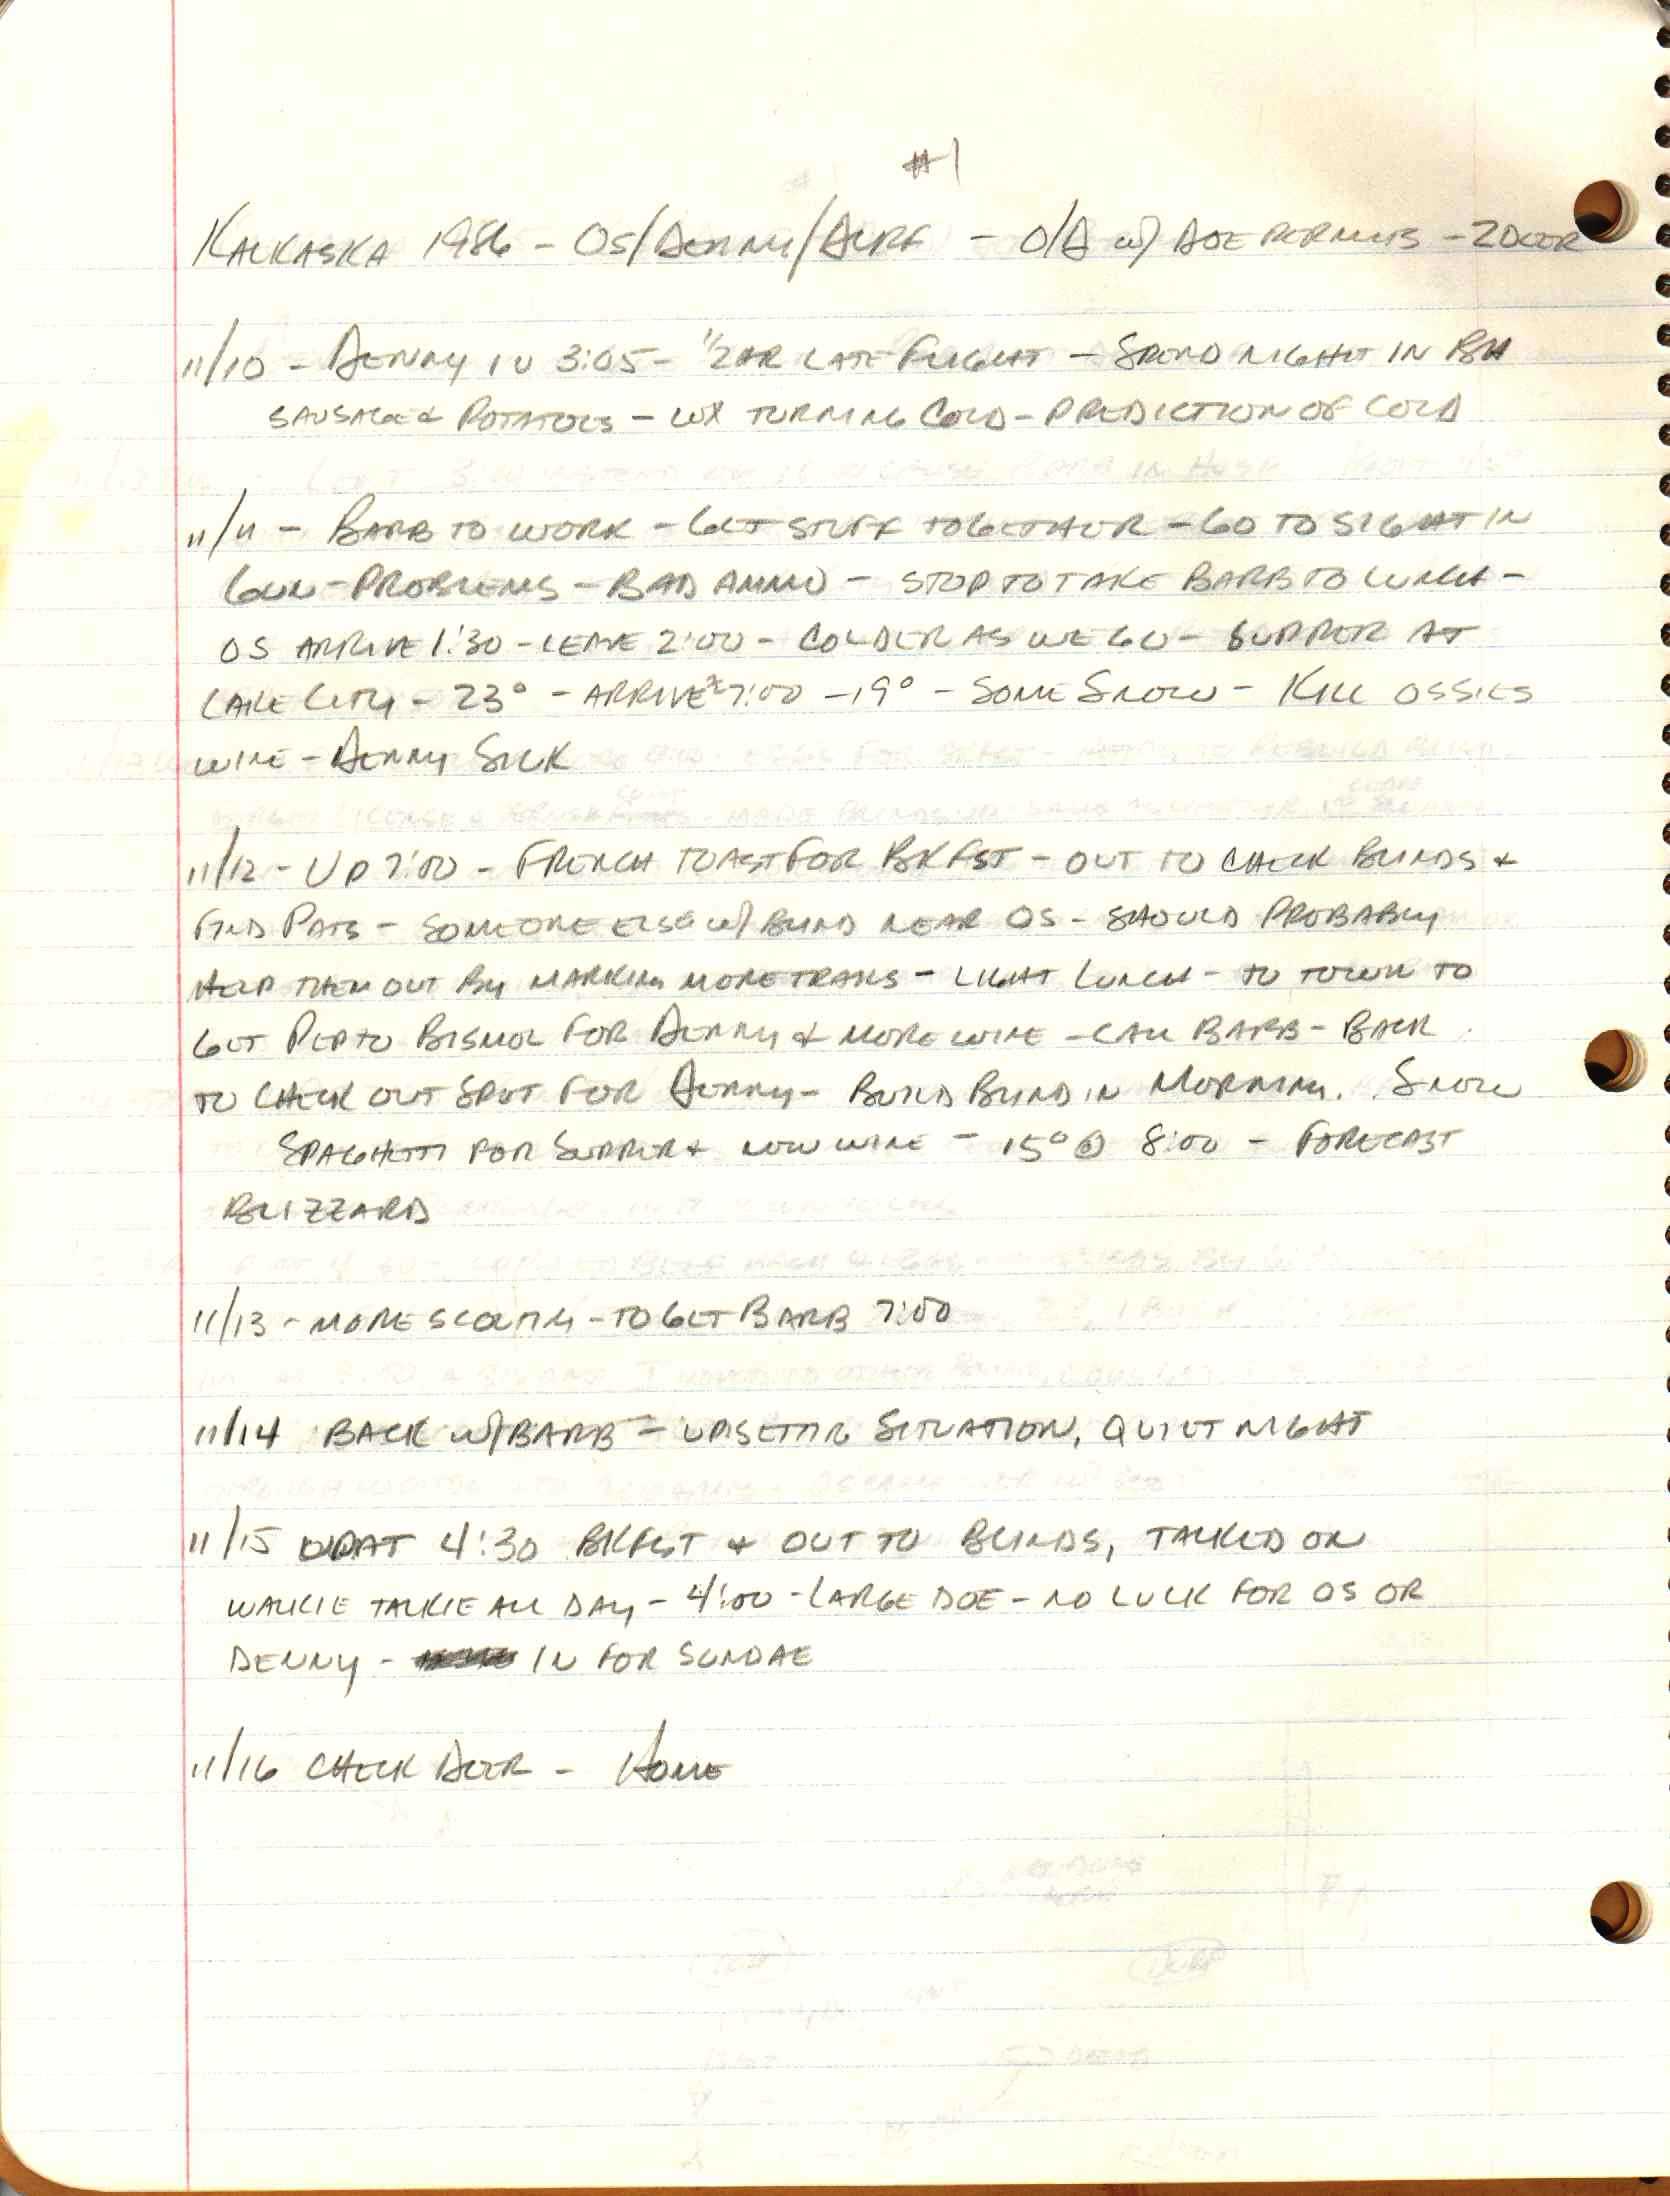 #1
KALKASKA 1986 - OS/DENNY/DURF - O/D w/ DOE PERMITS - 2 DEER
11/10 - DENNY IN 3:05 - 1/2 HR LATE FLIGHT - SPEND NIGHT IN BH
SAUSAGE & POTATOES - WX TURNING COLD - PREDICTION OF COLD
11/11 - BARB TO WORK - GET STUFF TOGETHER - GO TO SIGHT IN
GUN - PROBLEMS - BAD AMMO - STOP TO TAKE BARB TO LUNCH -
OS ARRIVE 1:30 - LEAVE 2:00 - COLDER AS WE GO - SUPPER AT
LAKE CITY - 23° - ARRIVE 7:00 - 19° - SOME SNOW - KILL OSSIES
WINE - DENNY SICK
11/12 - UP 7:00 - FRENCH TOAST FOR BKFST - OUT TO CHECK BLINDS &
FIND PATS - SOMEONE ELSE w/ BLIND NEAR OS - SHOULD PROBABLY
HELP THEM OUT BY MARKING MORE TRAILS - LIGHT LUNCH - TO TOWN TO
GET PEPTO BISMOL FOR DENNY & MORE WINE - CALL BARB - BACK
TO CHECK OUT SPOT FOR DENNY - BUILD BLIND IN MORNING. SNOW
SPAGHETTI FOR SUPPER & NEW WINE - 15° @ 8:00 - FORECAST
BLIZZARD
11/13 - MORE SCOUTING - TO GET BARB 7:00
11/14 BACK W/BARB - UPSETTING SITUATION, QUIET NIGHT
11/15 UP AT 4:30 BKFST & OUT TO BLINDS, TALKED ON
WALKIE TALKIE ALL DAY - 4:00 - LARGE DOE - NO LUCK FOR OS OR
DENNY - IN FOR SUNDAE
11/16 CHECK DEER - HOME